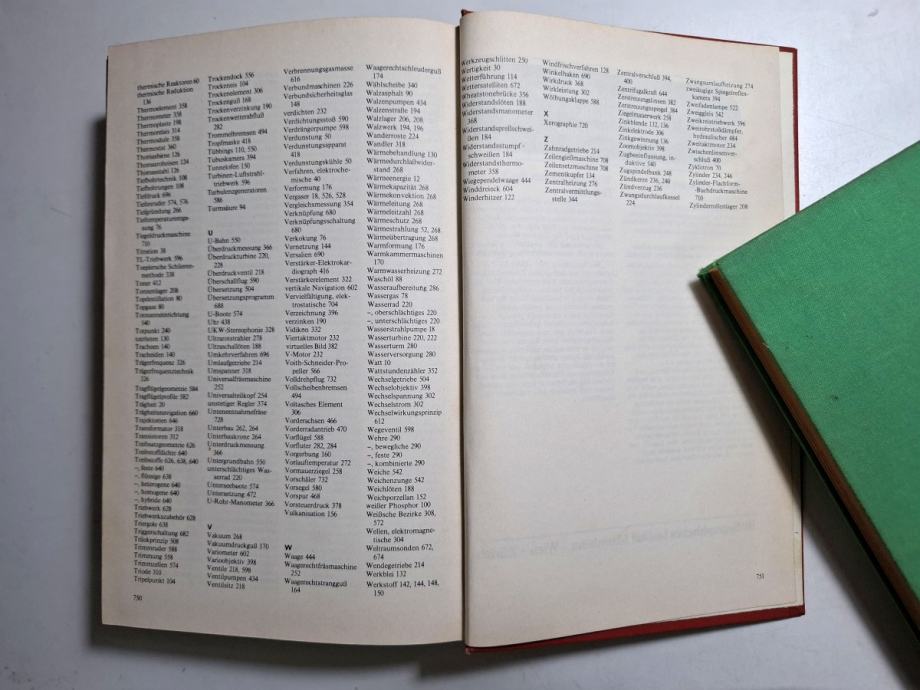 thermische Reaktoren 60
thermische Reduktion
136
Thermoelement 358
Thermometer 358
Thermoplaste 198
Thermostat 314
Thermosäule 358
Thermostat 360
Thomasbirne 126
Thomasroheisen 124
Thomasstahl 126
Tiefbohrtechnik 108
Tiefbohrungen 108
Tiefdruck 696
Tiefenruder 574, 576
Tiefgründung 266
Tieftemperaturmes-
sung 76
Tiegeldruckmaschine
710
Titration 38
TL-Triebwerk 596
Toeplersche Schlieren-
methode 338
Toner 412
Tonnenlager 208
Topdestillation 80
Topgase 80
Torsenneinrichtung
540
Totpunkt 240
Trachsen 140
Tracheiden 140
Trägerfrequenz 326
Trägerfrequenztechnik
326
Tragflügelgeometrie 584
Tragflügelprofile 582
Trägheit 20
Trägheitsnavigation 660
Trajektorien 646
Transformator 318
Transistoren 312
Treibsatzgeometrie 626
Treibstoffdichte 640
Treibstoffe 626, 638, 640
–, feste 640
–, flüssige 638
–, heterogene 640
–, homogene 640
–, hybride 640
Triebwerk 628
Triebwerkszubehör 628
Triergole 638
Triggerschaltung 682
Trilokprinzip 508
Trimmruder 588
Trimmung 558
Trimmzellen 574
Triode 310
Tripelpunkt 104
Trockendock 556
Trockeneis 104
Trockenelement 306
Trockenguß 168
Trockenverzinkung 190
Trockenwetterabfluß
282
Trommelbremsen 494
Tropfmaske 418
Tübbings 110, 550
Tubuskamera 394
Tunnelofen 150
Turbinen-Luftstrahl-
triebwerk 596
Turbulenzgeneratoren
586
Turmsäure 94
U
U-Bahn 550
Überdruckmessung 366
Überdruckturbine 220,
228
Überdruckventil 218
Überschallflug 590
Übersetzung 504
Übersetzungsprogramm
688
U-Boote 574
Uhr 438
UKW-Stereophonie 328
Ultrarotstrahler 278
Ultraschallöten 188
Umkehrverfahren 696
Umlaufgetriebe 214
Umspanner 318
Universalfräsmaschine
252
Universalteilkopf 254
unstetiger Regler 374
Untenentnahmefräse
728
Unterbau 262, 264
Unterbaukrone 264
Unterdruckmessung
366
Untergrundbahn 550
unterschlächtiges Was-
serrad 220
Unterseeboote 574
Untersetzung 472
U-Rohr-Manometer 366
V
Vakuum 268
Vakuumdruckguß 170
Variometer 602
Varioobjektiv 398
Ventile 218, 598
Ventilpumpen 434
Ventilsitz 218
Verbrennungsgasmasse
616
Verbundmaschinen 226
Verbundsicherheitsglas
148
verdichten 232
Verdichtungsstoß 590
Verdrängerpumpe 598
Verdunstung 50
Verdunstungsapparat
418
Verdunstungskühle 50
Verfahren, elektroche-
mische 40
Verformung 176
Vergaser 18, 526, 528
Vergleichsmessung 354
Verknüpfung 680
Verknüpfungsschaltung
680
Verkokung 76
Vernetzung 144
Versalien 690
Verstärker-Elektrokar-
diograph 416
Verstärkerelement 322
vertikale Navigation 602
Vervielfältigung, elek-
trostatische 704
Verzeichnung 396
verzinken 190
Vidikon 332
Viertaktmotor 232
virtuelles Bild 382
V-Motor 232
Voith-Schneider-Pro-
peller 566
Volldrehpflug 732
Vollscheibenbremsen
494
Voltasches Element
306
Vorderachsen 466
Vorderradantrieb 470
Vorflügel 588
Vorfluter 282, 284
Vorgerbung 160
Vorlauftemperatur 272
Vormauerziegel 258
Vorschäler 732
Vorsegel 580
Vorspur 468
Vorsteuerdruck 378
Vulkanisation 156
W
Waage 444
Waagerechtfräsmaschine
252
Waagerechtstrangguß
164
Waagerechtschleuderguß
174
Wählscheibe 340
Walzasphalt 90
Walzenpumpen 434
Walzenstraße 194
Walzlager 206, 208
Walzwerk 194, 196
Wanderroste 224
Wandler 318
Wärmebehandlung 130
Wärmedurchlaßwider-
stand 268
Wärmeenergie 12
Wärmekapazität 268
Wärmekonvektion 268
Wärmeleitung 268
Wärmeleitzahl 268
Wärmeschutz 268
Wärmestrahlung 52, 268
Wärmeübertragung 268
Warmformung 176
Warmkammermaschinen
170
Warmwasserheizung 272
Waschöl 88
Wasseraufbereitung 286
Wassergas 78
Wasserrad 220
–, oberschlächtiges 220
–, unterschlächtiges 220
Wasserstrahlpumpe 18
Wasserturbine 220, 222
Wasserturm 280
Wasserversorgung 280
Watt 10
Wattstundenzähler 352
Wechselgetriebe 504
Wechselobjektiv 398
Wechselspannung 302
Wechselstrom 302
Wechselwirkungsprinzip
612
Wegeventil 598
Wehre 290
–, bewegliche 290
–, feste 290
–, kombinierte 290
Weiche 542
Weichenzunge 542
Weichlöten 188
Weichporzellan 152
weißer Phosphor 100
Weißsche Bezirke 308,
572
Wellen, elektromagne-
tische 304
Weltraumsonden 672,
674
Wendegetriebe 214
Werkblei 132
Werkstoff 142, 144, 148,
150
750
Werkzeugschlitten 250
Wertigkeit 30
Wetterführung 114
Wettersatelliten 672
Wheatstonebrücke 356
Widerstandslöten 188
Widerstandsmanometer
368
Widerstandspreßschwei-
ßen 184
Widerstandsstumpf-
schweißen 184
Widerstandsthermo-
meter 358
Wiegependelwaage 444
Winddreieck 604
Winderhitzer 122
Windfrischverfahren 128
Winkelhaken 690
Wirkdruck 368
Wirkleistung 302
Wölbungsklappe 588
X
Xerographie 720
Z
Zahnradgetriebe 214
Zeilengießmaschine 708
Zeilensetzmaschine 708
Zementkupfer 134
Zentralheizung 276
Zentralvermittlungs-
stelle 344
Zentralverschluß 394,
400
Zentrifugalkraft 644
Zerstreuungslinsen 382
Zerstreuungsspiegel 384
Ziegelmauerwerk 258
Zinkblende 132, 136
Zinkelektrode 306
Zinkgewinnung 136
Zoomobjektiv 398
Zugbeeinflussung, in-
duktive 540
Zugspindelbank 248
Zündkerze 236, 240
Zündverzug 236
Zwangsdurchlaufkessel
224
Zwangsumlaufheizung 274
zweiäugige Spiegelreflex-
kamera 394
Zweifadenlampe 522
Zweggleis 542
Zweikreistriebwerk 596
Zweirohrstoßdämpfer,
hydraulischer 464
Zweitaktmotor 234
Zwischenlinsenver-
schluß 400
Zyklotron 70
Zylinder 234, 346
Zylinder-Flachform-
Buchdruckmaschine
710
Zylinderrollenlager 208
751